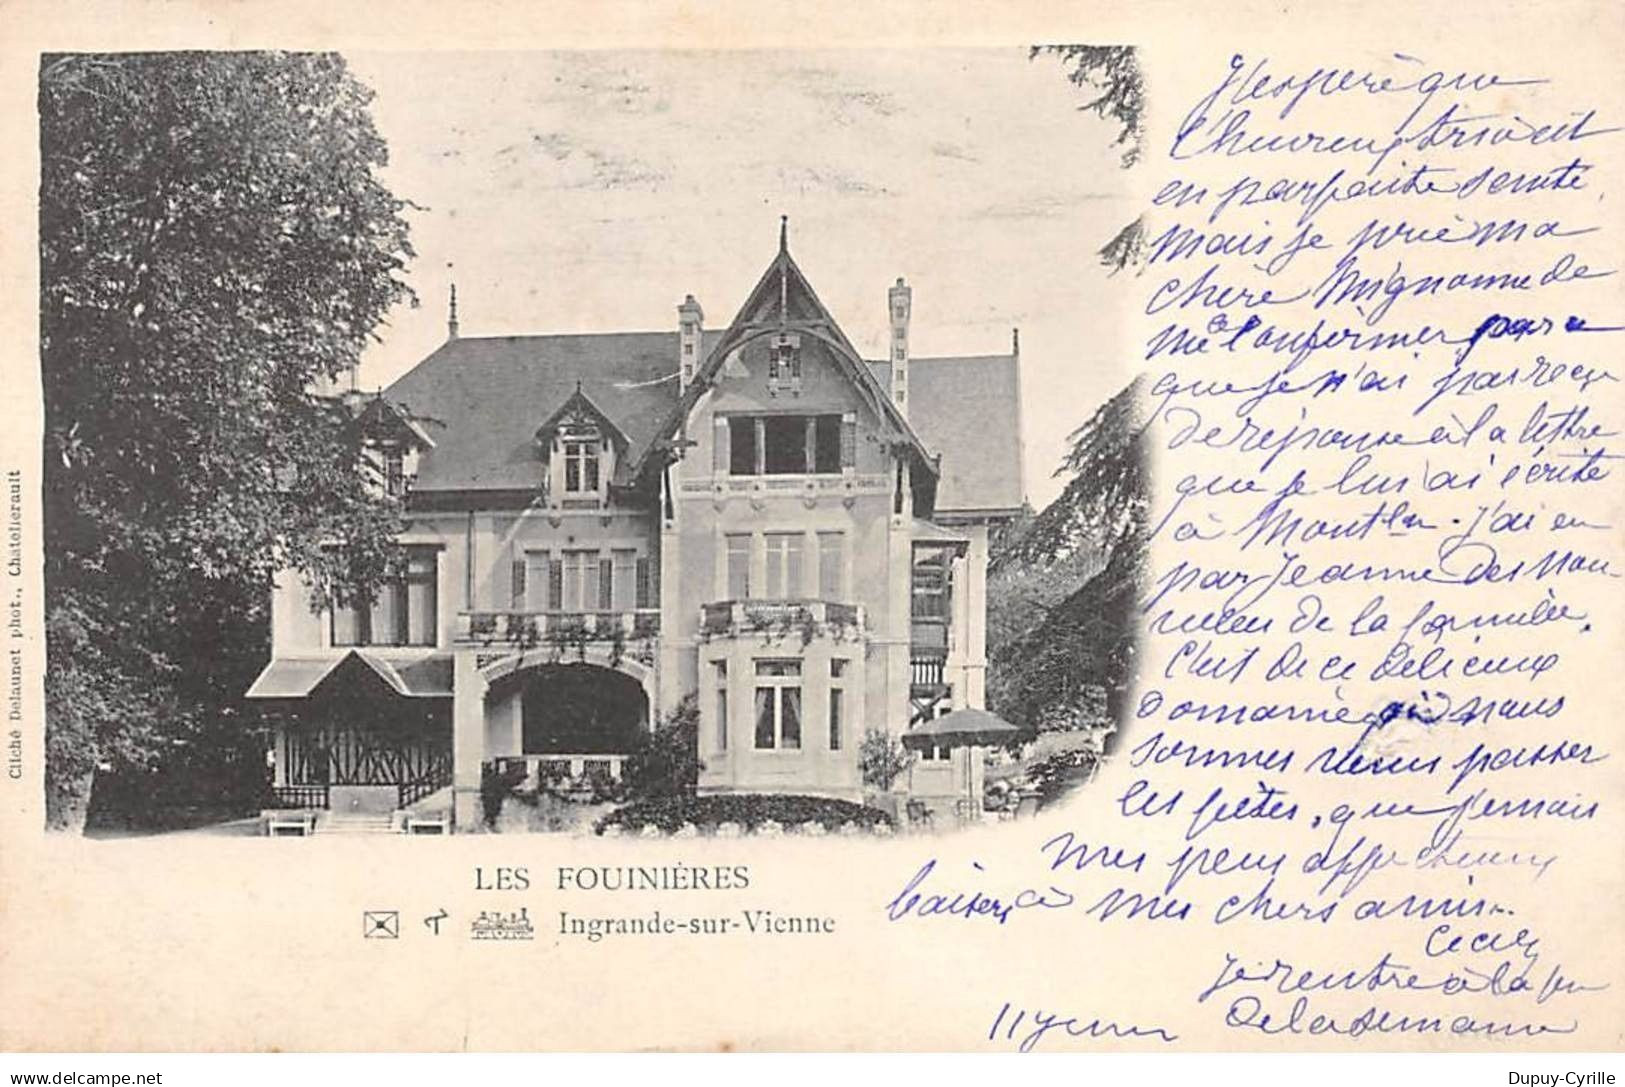 J'espère que
l'heureux trio est
en parfaite santé,
mais je prie ma
chère Mignonne de
me le confirmer parce
que je n'ai pas reçu
de réponse à la lettre
que je lui ai écrite
à Mont. J'ai eu
par Jeanne des nou-
velles de la famille.
C'est de ce délicieux
Domaine où nous
sommes venus passer
les fêtes, que j'envoie
mes plus affectueux
baisers à mes chers amis.
Cécile
Je rentre à la fin
de la semaine
11 janvier
Cliché Delaunet phot., Chatellerault
LES FOUINIÈRES
Ingrande-sur-Vienne
delcampe.net
Dupuy-Cyrille